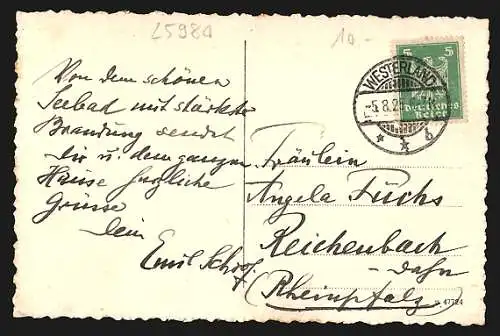 L5980
10.-
5 5
Deutsches
Reich
WESTERLAND
-5.8.2
* * b
Von dem schönen
Seebad mit stärkster
Brandung sendet
Dir u. dem ganzen
Hause herzliche
Grüsse
Dein
Emil Schoof
Fräulein
Angela Fuchs
Reichenbach
- Dahn
(Rheinpfalz)
47724